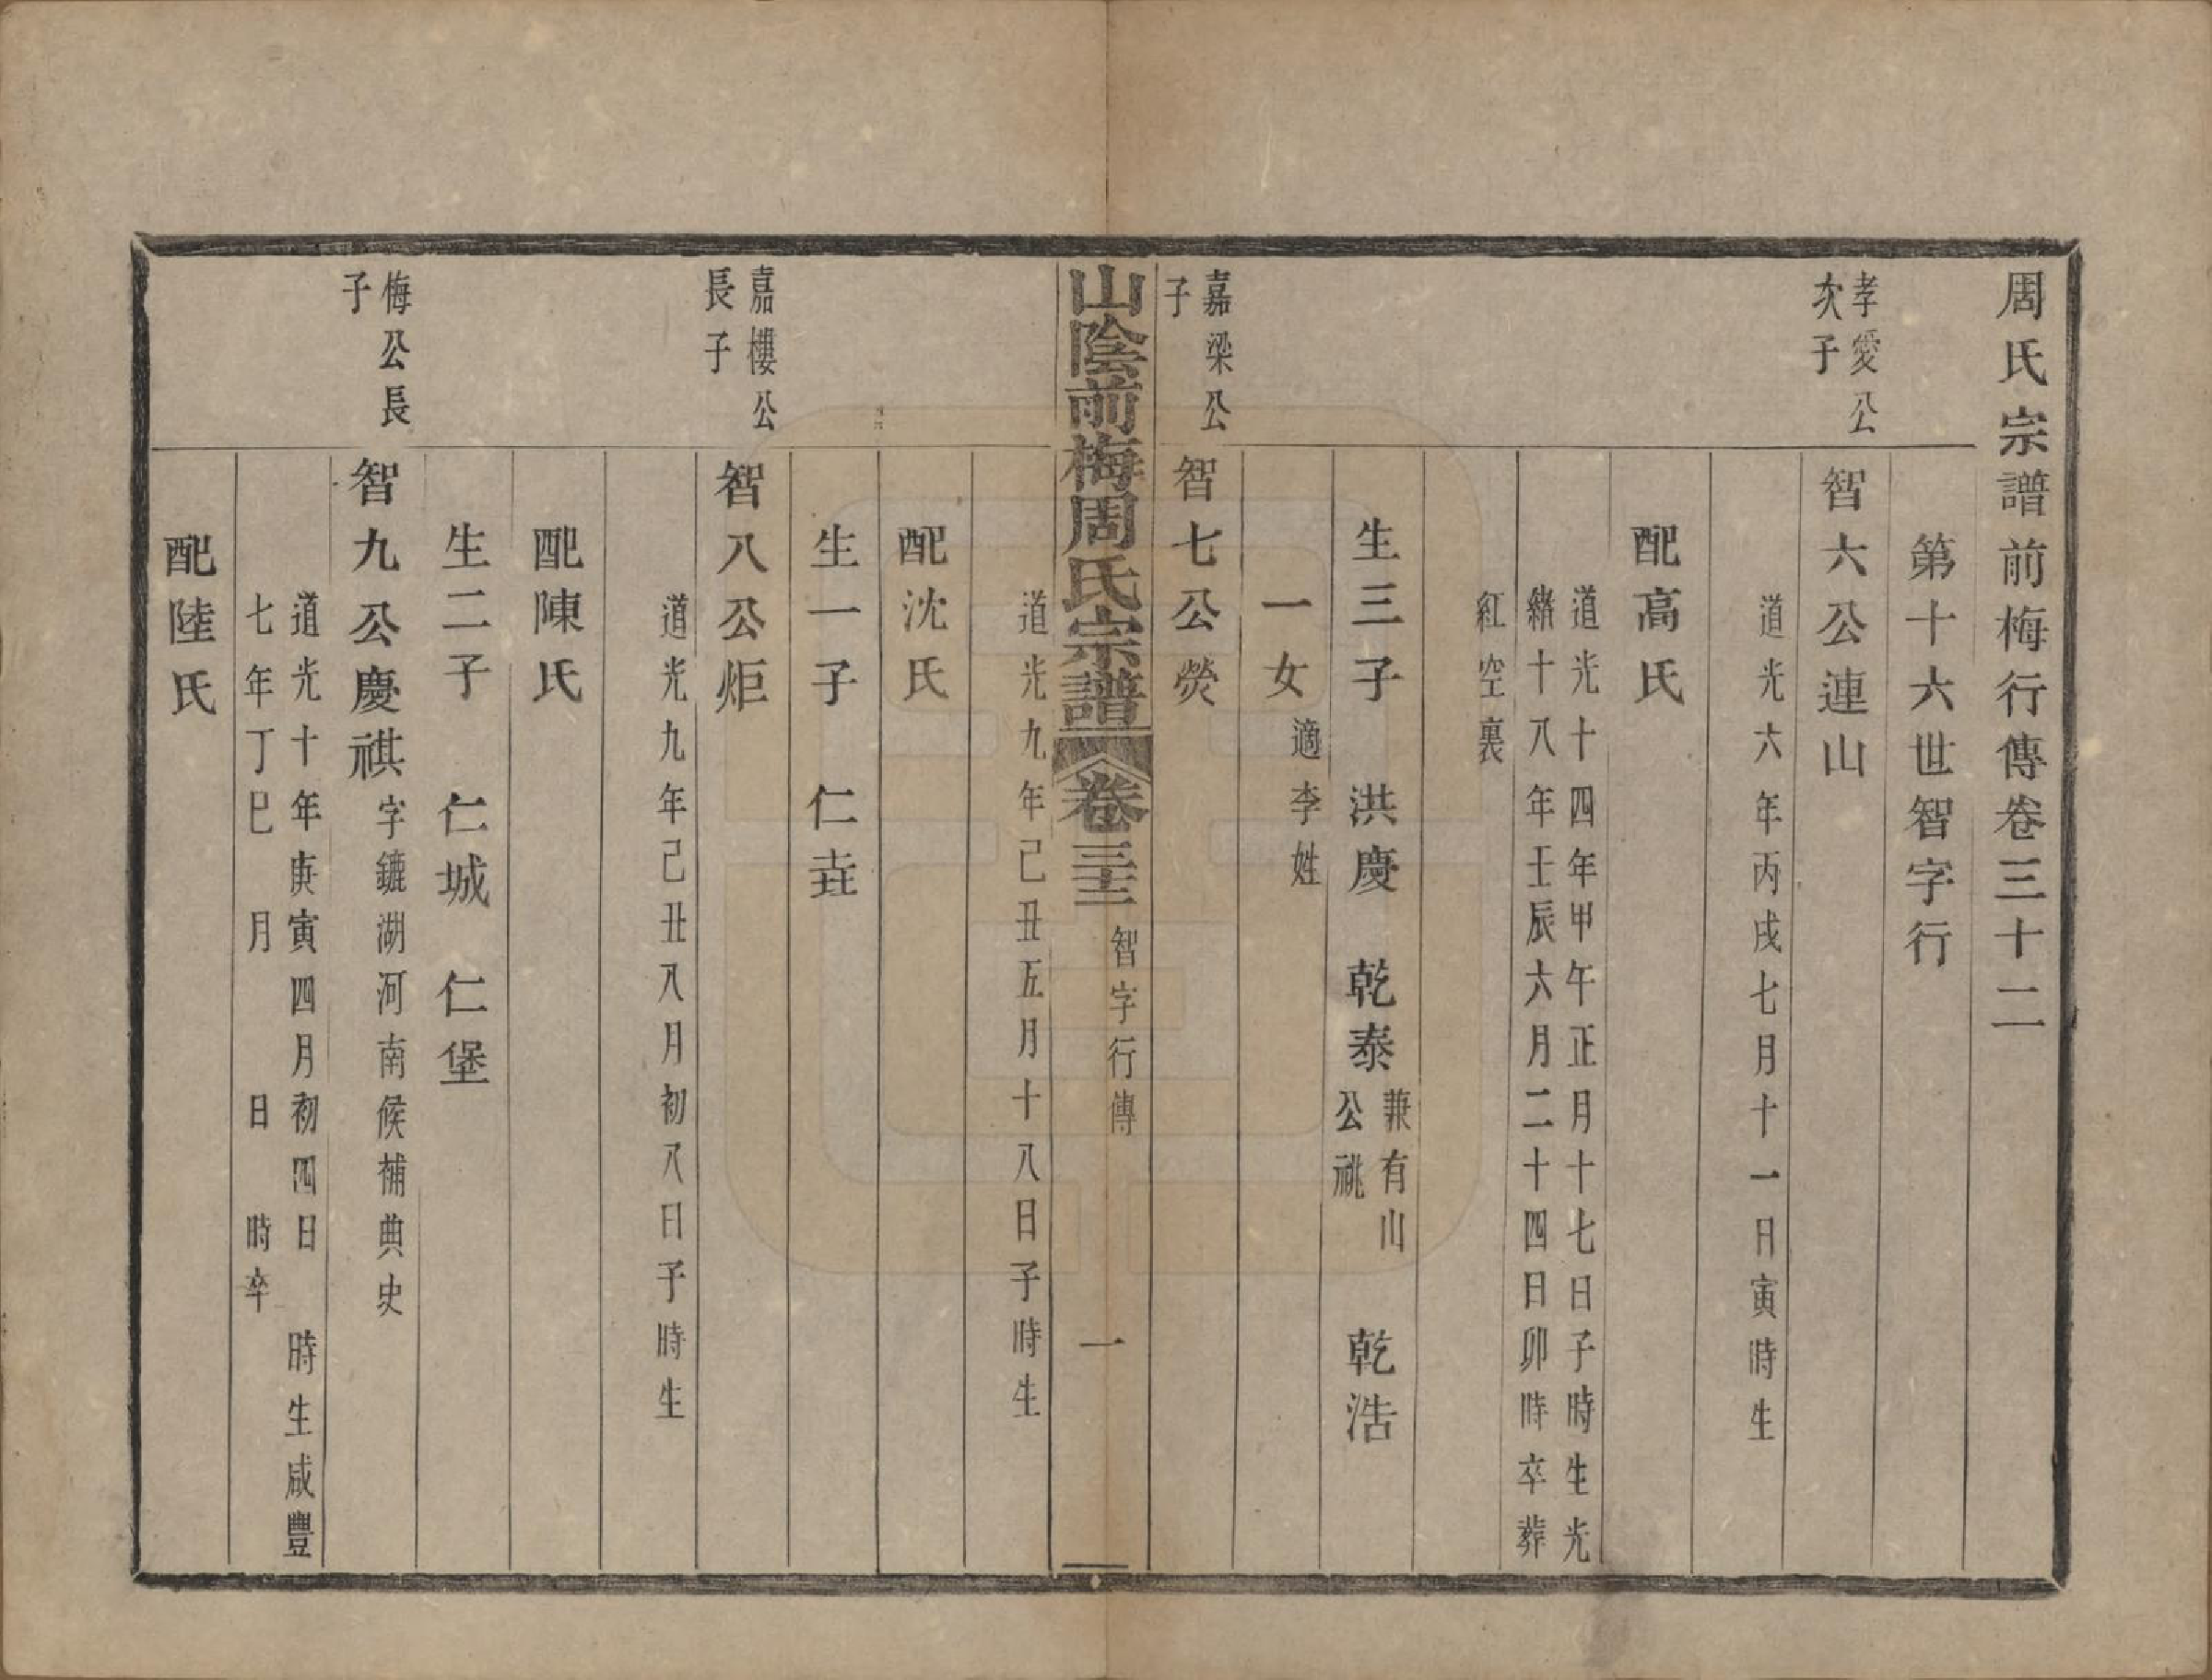 周氏宗譜前梅行傳卷三十二
第十六世智字行
孝愛公
次子
智六公連山
道光六年丙戌七月十一日寅時生
配高氏
道光十四年甲午正月十七日子時生光
緒十八年壬辰六月二十四日卯時卒葬
紅空裏
生三子 洪慶 乾泰 兼有山
公祧 乾浩
一女 適李姓
嘉梁公
子
智七公熒
山陰前梅周氏宗譜 卷三十二 智字行傳 一
道光九年己丑五月十八日子時生
配沈氏
生一子 仁垚
嘉樓公
長子
智八公炬
道光九年己丑八月初八日子時生
配陳氏
生二子 仁城 仁堡
侮公長
子
智九公慶祺 字鑣湖河南候補典史
道光十年庚寅四月初四日 時生咸豐
七年丁巳 月 日 時卒
配陸氏